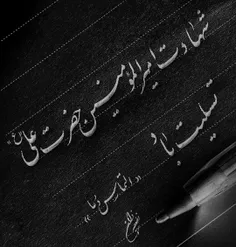 شهادت امیرالمؤمنین حضرت علی (ع)
تسلیت باد
"التماس دعا"